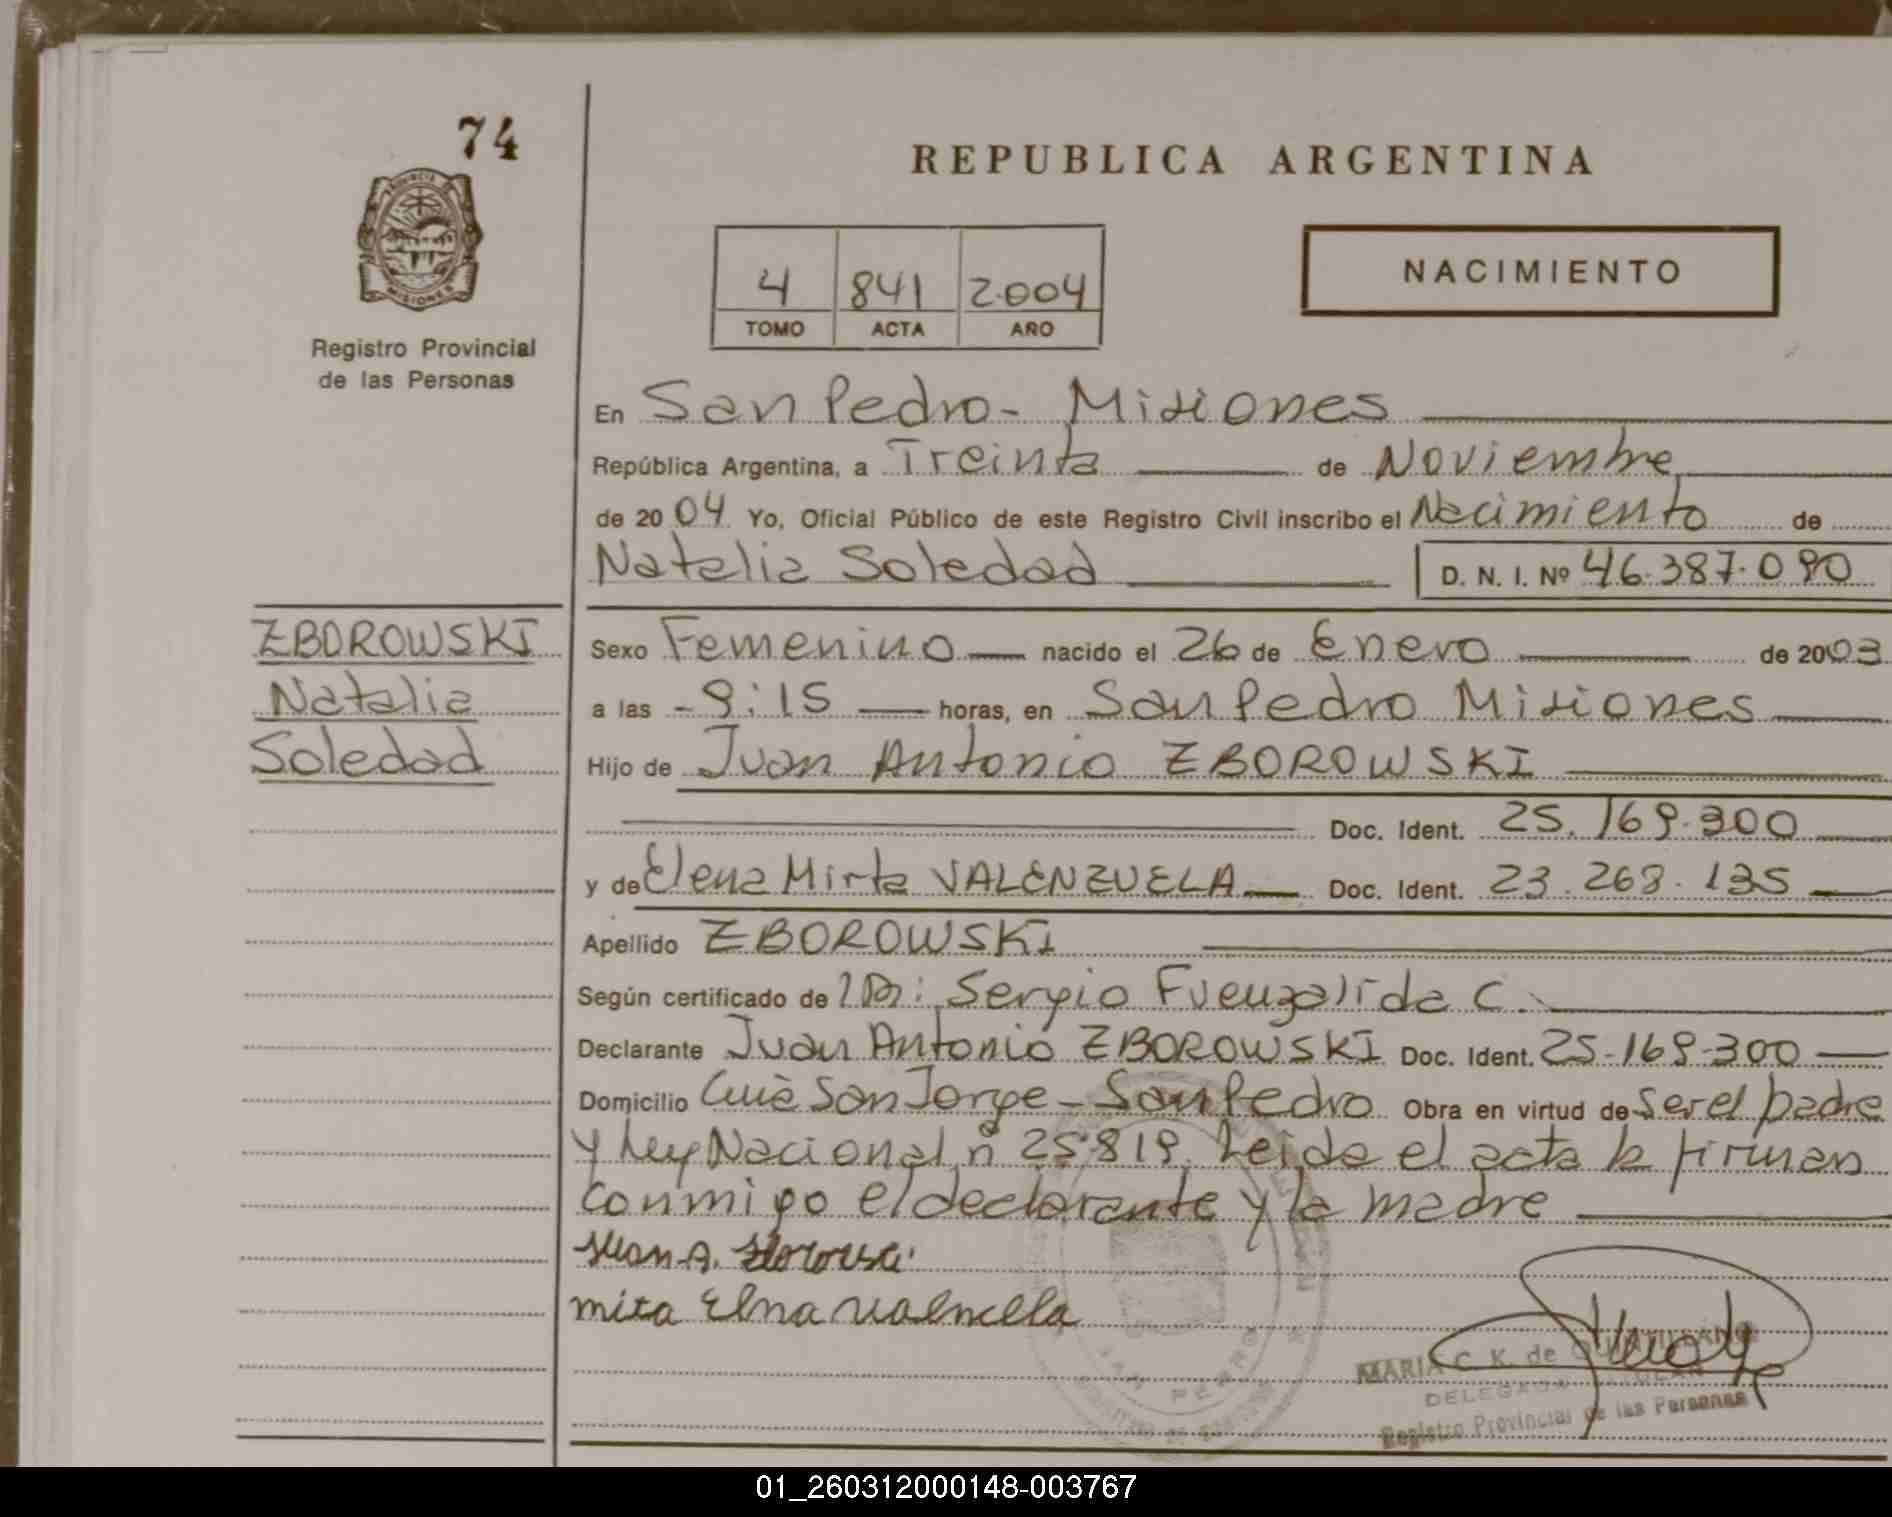 74
REPUBLICA ARGENTINA
PROVINCIA DE
MISIONES
Registro Provincial
de las Personas
4 841 2.004
TOMO ACTA AÑO
NACIMIENTO
En San Pedro - Misiones
República Argentina, a Treinta de Noviembre
de 2004 Yo, Oficial Público de este Registro Civil inscribo el Nacimiento de
Natalia Soledad D. N. I. Nº 46.387.090
ZBOROWSKI
Natalia
Soledad
Sexo Femenino nacido el 26 de Enero de 2003
a las 9:15 horas, en San Pedro Misiones
Hijo de Juan Antonio ZBOROWSKI
Doc. Ident. 25.169.300
y de Elena Mirta VALENZUELA Doc. Ident. 23.268.135
Apellido ZBOROWSKI
Según certificado de Dr: Sergio Fuenzalida C.
Declarante Juan Antonio ZBOROWSKI Doc. Ident. 25-169-300
Domicilio San Jorge - San Pedro Obra en virtud de Ser el padre
y Ley Nacional nº 25819. Leida el acta la firman
conmigo el declarante y la madre
Juan A.
mita Elna valencella
SAN PEDRO
MARIA C. K. de
DELEGADA TITULAR
Registro Provincial de las Personas
01_260312000148-003767